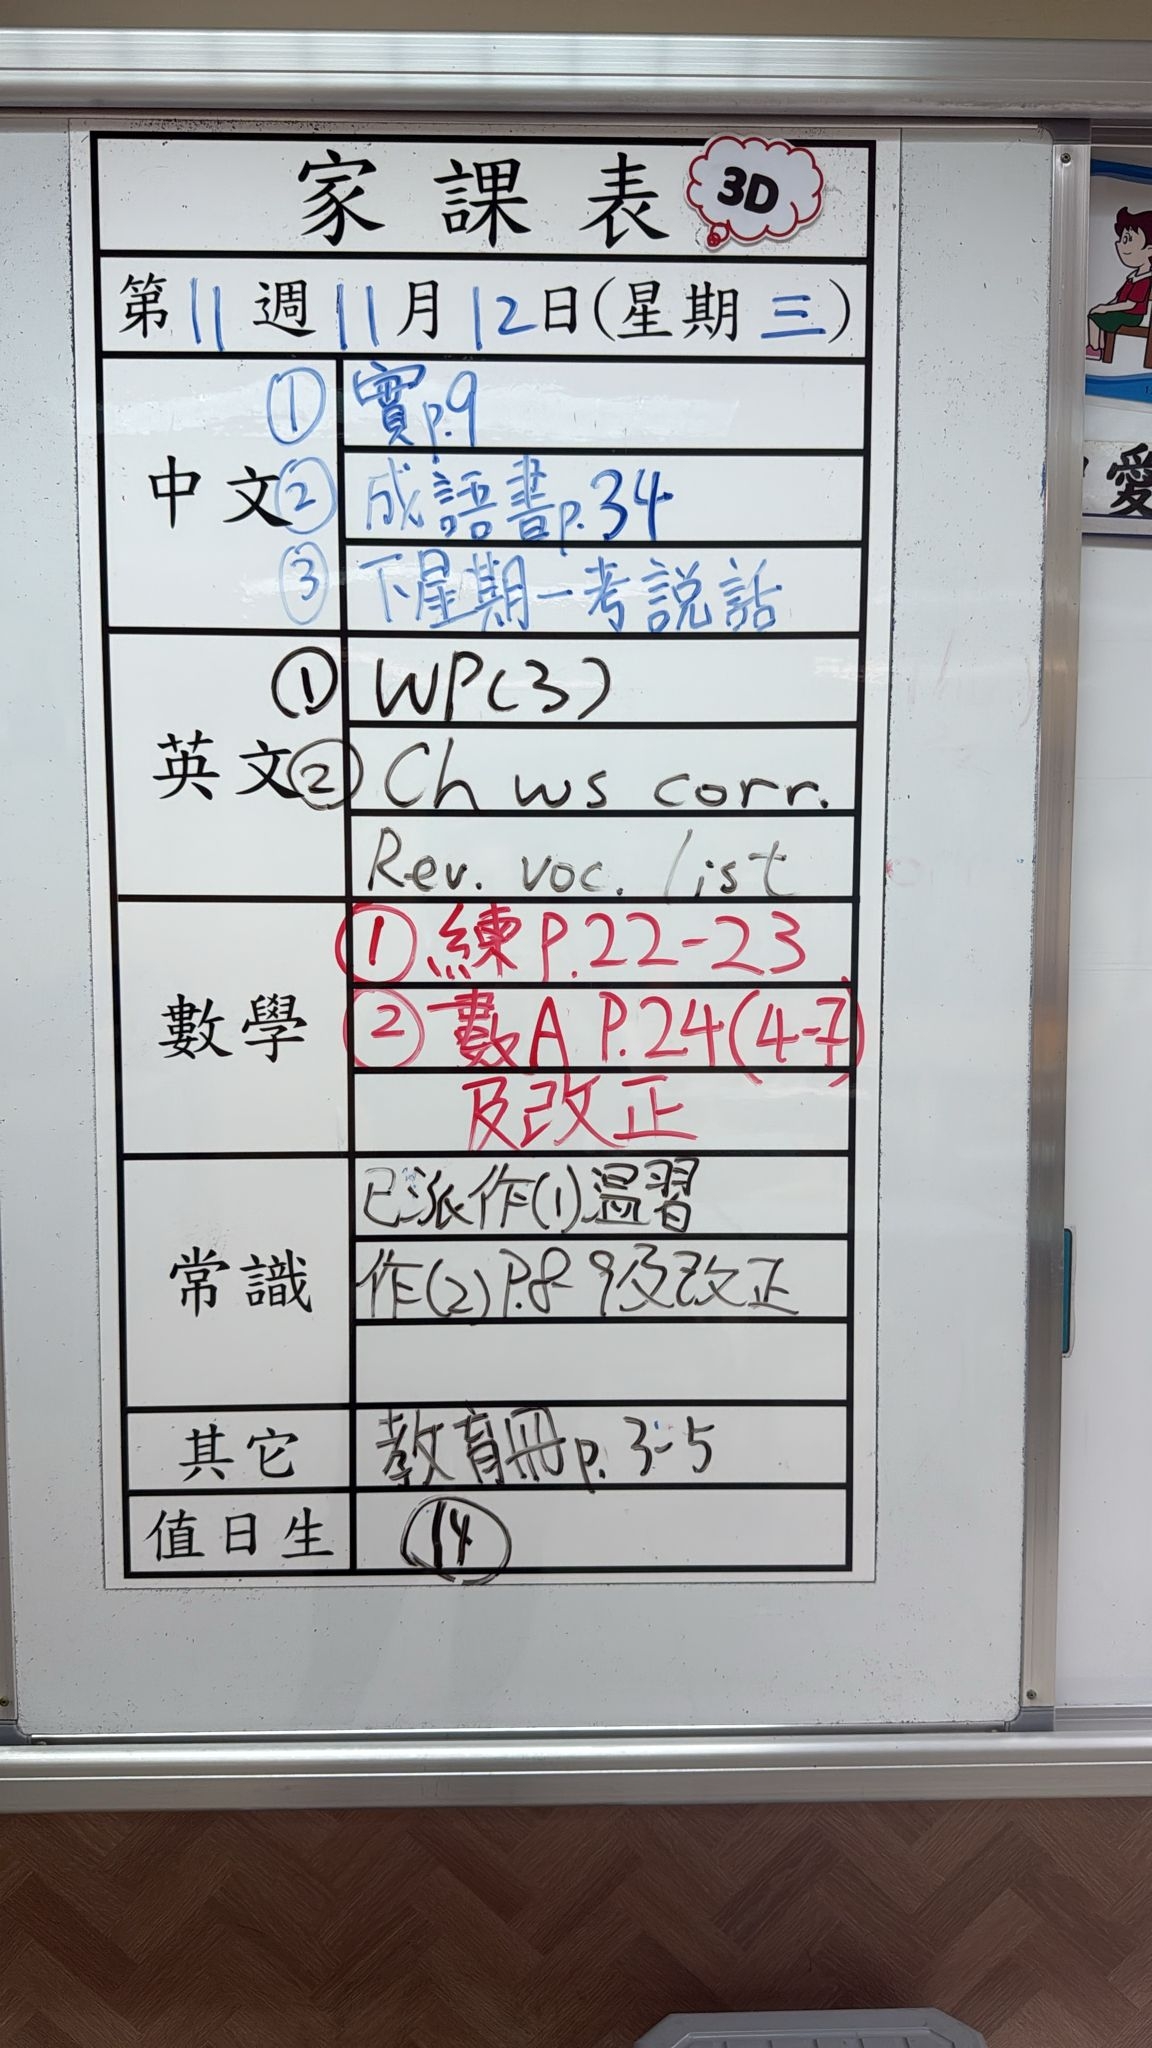 家課表 3D
第11週11月12日(星期三)
中文
① 實p.9
② 成語書p.34
③ 下星期一考說話
英文
① WP(3)
② Ch ws corr.
Rev. voc. list
數學
① 練P.22-23
② 數A P.24(4-7)
及改正
常識
已派作(1)溫習
作(2)P.8-9及改正
其它
教育冊p.3-5
值日生
⑭
愛